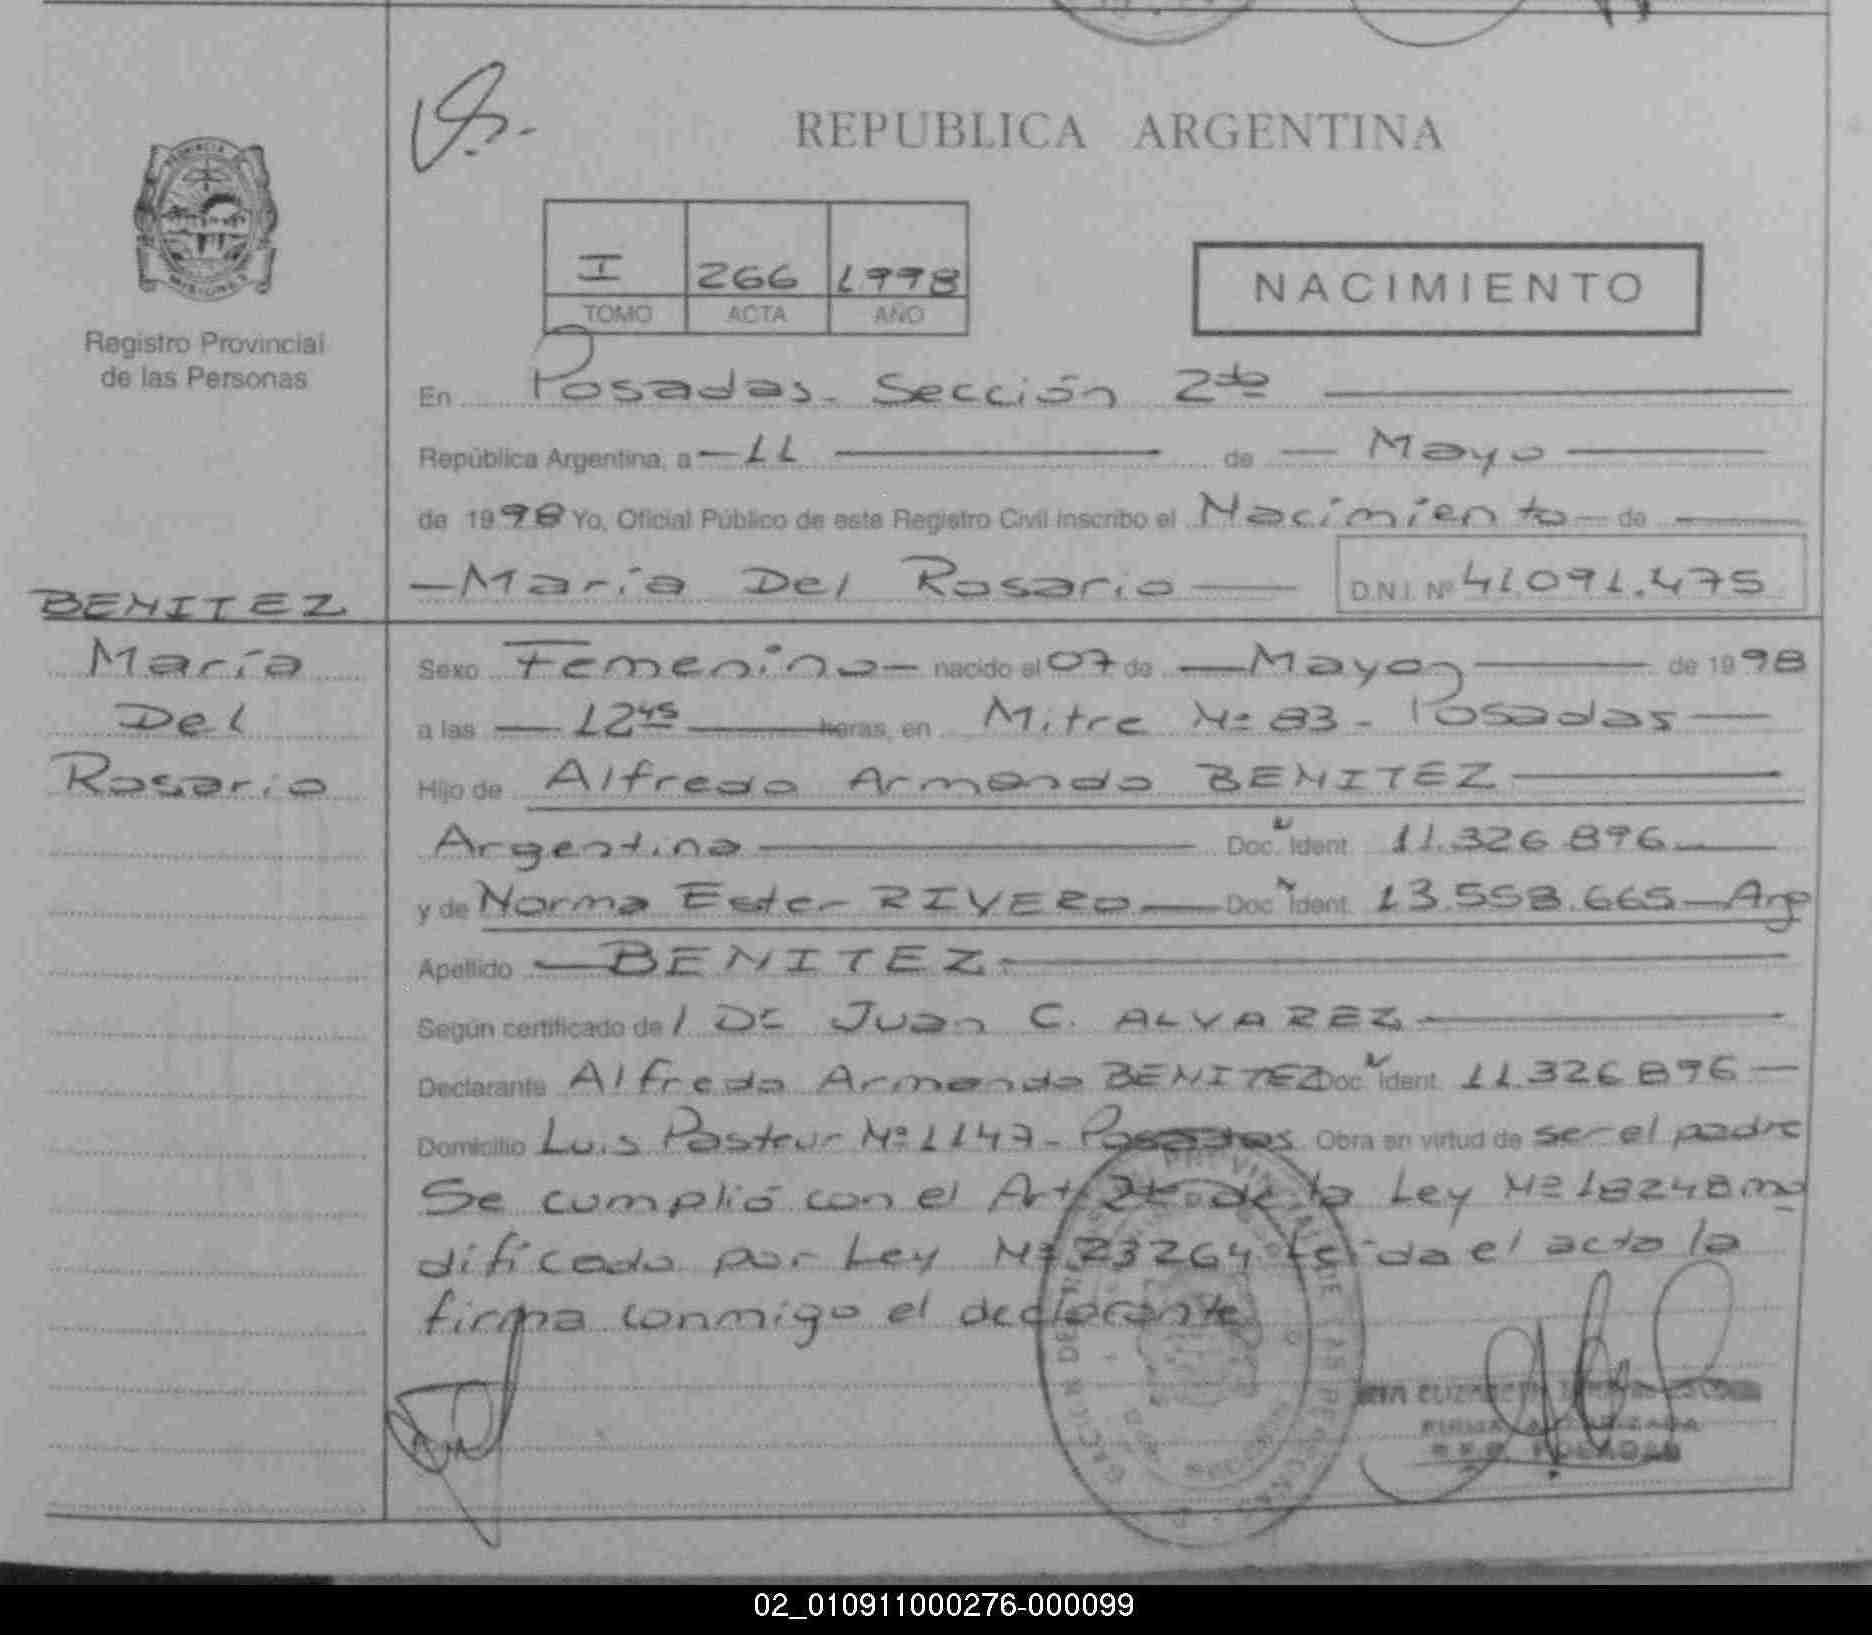 REPUBLICA ARGENTINA
PROVINCIA
MISIONES
Registro Provincial
de las Personas
I 266 1998
TOMO ACTA AÑO
NACIMIENTO
En Posadas. Sección 2da
República Argentina, a 11 de Mayo
de 1998 Yo, Oficial Público de este Registro Civil inscribo el Nacimiento de
María Del Rosario D.N.I. Nº 41.091.475
BENITEZ
María
Del
Rosario
Sexo Femenino nacido el 07 de Mayo de 1998
a las 12 45 horas, en Mitre Nº 83 - Posadas
Hijo de Alfredo Armando BENITEZ
Argentina Doc. Ident. 11.326.896
y de Norma Ester RIVERO Doc. Ident. 13.558.665 - Arg
Apellido BENITEZ
Según certificado de / Dr Juan C. ALVAREZ
Declarante Alfredo Armando BENITEZ Doc. Ident. 11.326.896
Domicilio Luis Pasteur Nº 1147 - Posadas Obra en virtud de ser el padre
Se cumplió con el Art. de la Ley Nº 18248 mo
dificado por Ley Nº 23264 Leída el acta la
firma conmigo el declarante
ELIZABETH
FIRMA AUTORIZADA
POSADAS
02_010911000276-000099